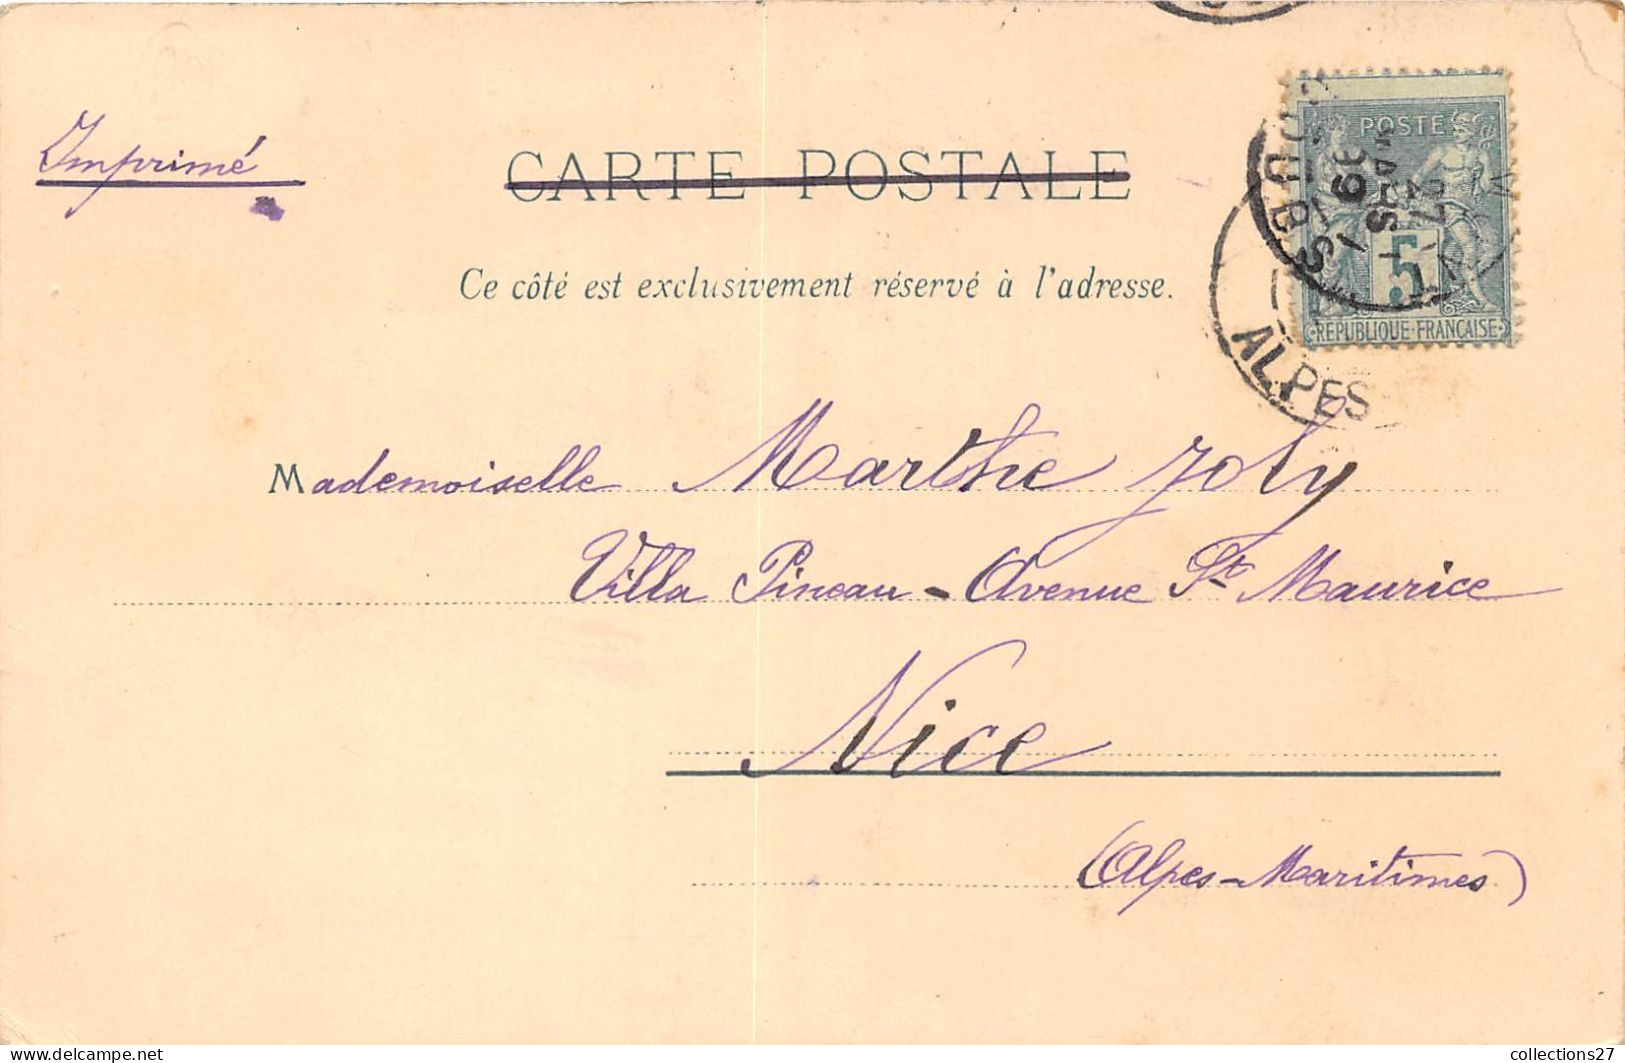 Imprimé
CARTE POSTALE
Ce côté est exclusivement réservé à l'adresse.
POSTE
5
RÉPUBLIQUE FRANÇAISE
27
MARS
ALPES
Mademoiselle Marthe Joly
Villa Pineau - Avenue St Maurice
Nice
(Alpes-Maritimes)
collections27